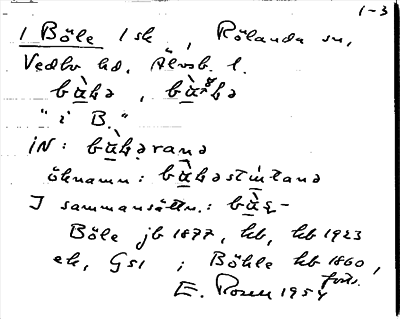 1-3
1 Böle 1 sk , Rölanda sn,
Vedbo hd. Älvsb. l.
bàlə , bàlə
"i B."
iN: bàlərana
öknamn: bàləstintana
I sammansättn.: bàl-
Böle jb 1877, kb, kb 1923
ek, GSI ; Böhle kb 1860,
forts.
E. Rosen 1954